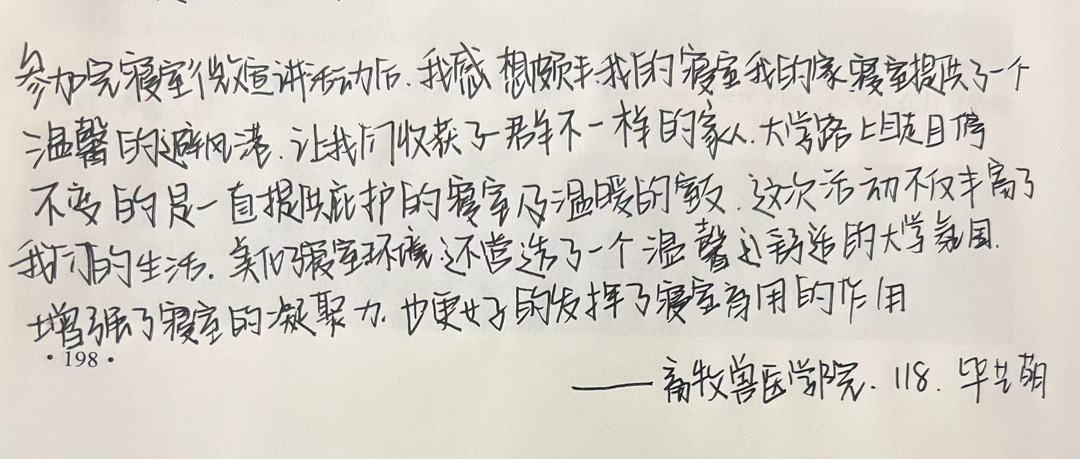 参加完寝室微宣讲活动后，我感想颇丰.我的寝室我的家.寝室提供了一个
温馨的避风港，让我们收获了一群不一样的家人.大学路上且走且停
不变的是一直提供庇护的寝室及温暖的室友.这次活动不仅丰富了
我们的生活，美化了寝室环境还营造了一个温馨又舒适的大学氛围.
增强了寝室的凝聚力.也更好的发挥了寝室育用的作用
·198·
——畜牧兽医学院.118.毕